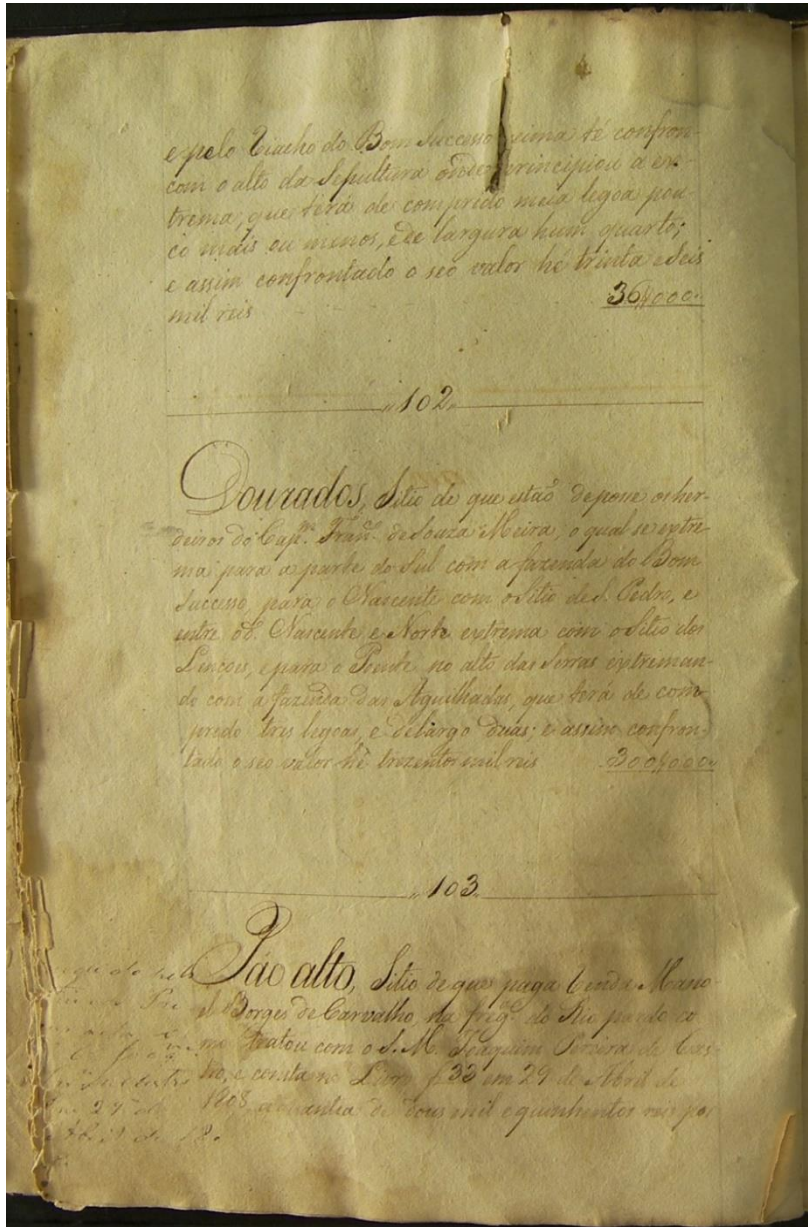 e pelo Riacho do Bom Successo asima té confron-
com o alto da Sepultura onde principiou a ex-
trema, que terá de comprido meia legoa pou-
co mais ou menos, e de largura hum quarto;
e assim confrontado o seo valor hé trinta e seis
mil reis 36$000
102
Dourados, Sitio de que estaõ deposse os her-
deiros do Capm. Franco. de Souza Meira, o qual se extre-
ma para a parte do Sul com a fazenda do Bom
Successo, para o Nascente com o Sitio de S. Pedro, e
entre o Nascente e Norte extrema com o Sitio dos
Lençoes, e para o Poente no alto das Serras extreman-
do com a fazenda das Aguilhadas, que terá de com-
prido tres legoas, e de largo duas; e assim confron-
tado o seo valor hé trezentos mil reis 300$000
103
Páo alto, Sitio de que paga renda Mano-
el Borges de Carvalho, na frega. do Rio pardo co-
mo tratou com o S. M. Joaquim Pereira de Cas-
tro, e consta no Livro f 33 em 29 de Abril de
1808 a quantia de dous mil e quinhentos reis por